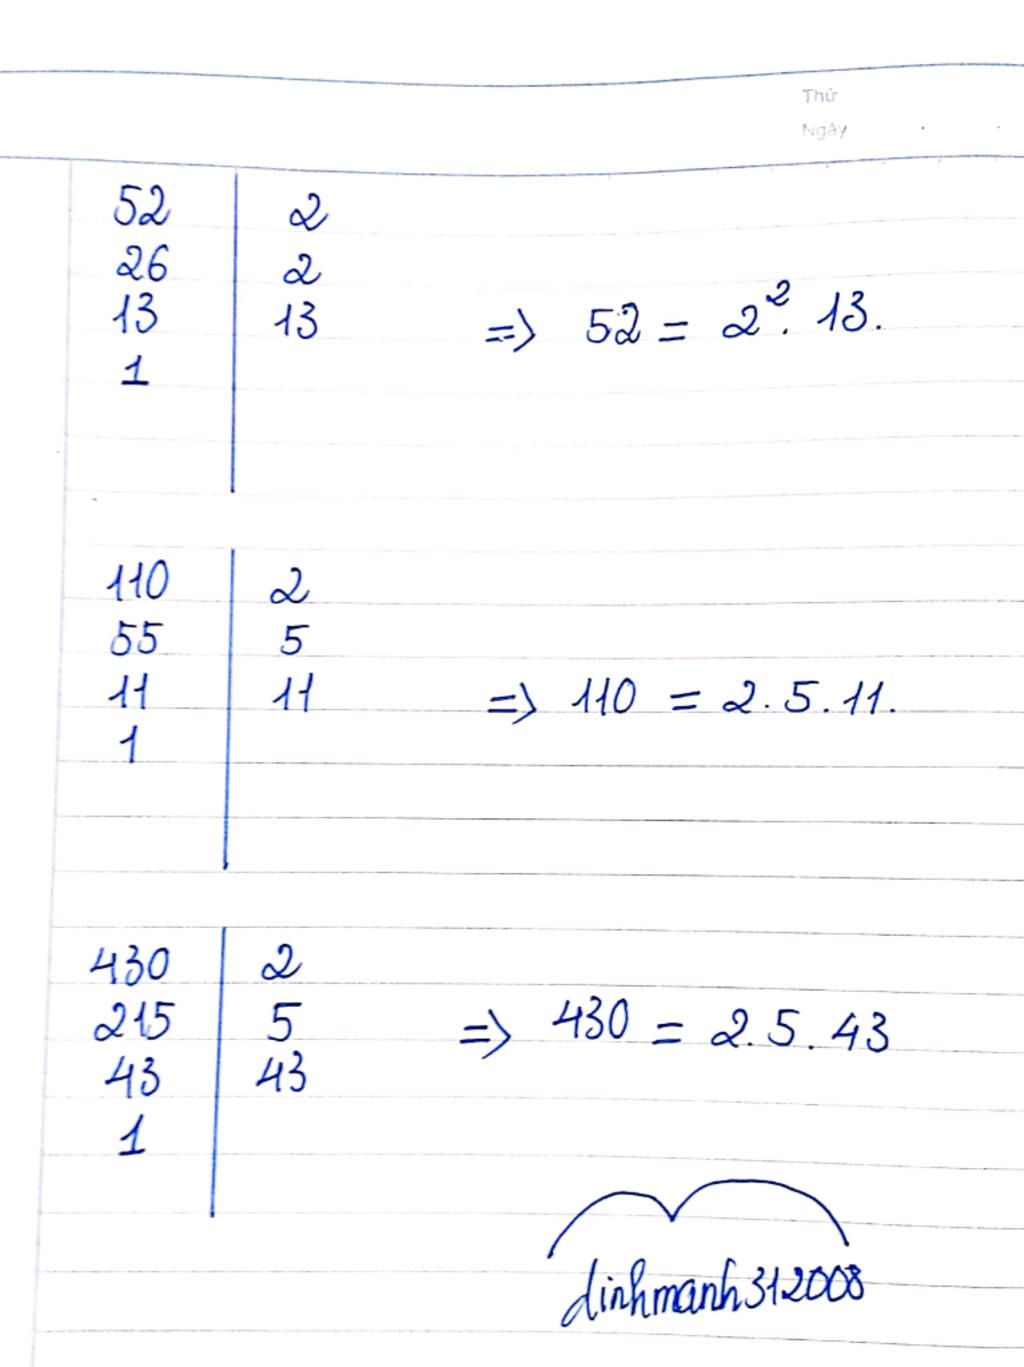 Thứ
Ngày
52 | 2
26 | 2
13 | 13 => 52 = 2². 13.
1
110 | 2
55 | 5
11 | 11 => 110 = 2.5.11.
1
430 | 2
215 | 5 => 430 = 2.5.43
43 | 43
1
dinhmanh312008